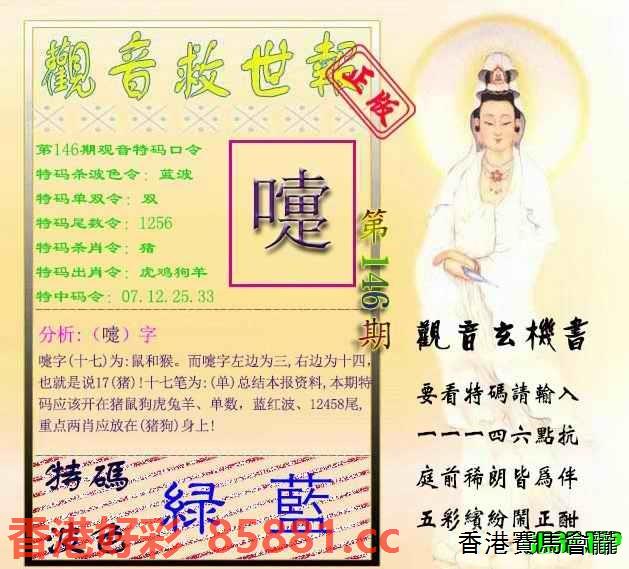 觀音救世報
正版
第146期观音特码口令
特码杀波色令：蓝波
特码单双令：双
特码尾数令：1256
特码杀肖令：猪
特码出肖令：虎鸡狗羊
特中码令：07.12.25.33
嚏
第146期
分析:（嚏）字
嚏字(十七)为:鼠和猴。而嚏字左边为三,右边为十四,
也就是说17(猪)!十七笔为:(单)总结本报资料,本期特
码应该开在猪鼠狗虎兔羊、单数，蓝红波、12458尾,
重点两肖应放在(猪狗)身上!
特碼
波色
緑 藍
觀音玄機書
要看特碼請輸入
一一一四六點抗
庭前稀朗皆爲伴
五彩繽紛鬧正酣
香港好彩 85881.cc
香港賽馬會